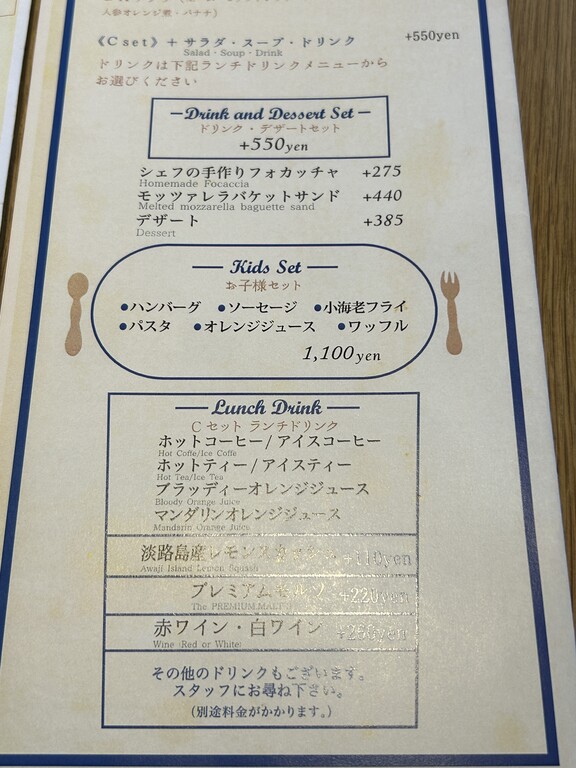 人参オレンジ煮・バナナ)
《C set》＋ サラダ・スープ・ドリンク +550yen
Salad・Soup・Drink
ドリンクは下記ランチドリンクメニューから
お選びください
Drink and Dessert Set
ドリンク・デザートセット
+550yen
シェフの手作りフォカッチャ +275
Homemade Focaccia
モッツァレラバケットサンド +440
Melted mozzarella baguette sand
デザート +385
Dessert
Kids Set
お子様セット
●ハンバーグ ●ソーセージ ●小海老フライ
●パスタ ●オレンジジュース ●ワッフル
1,100yen
Lunch Drink
Cセット ランチドリンク
ホットコーヒー/アイスコーヒー
Hot Coffe/Ice Coffe
ホットティー/アイスティー
Hot Tea/Ice Tea
ブラッディーオレンジジュース
Bloody Orange Juice
マンダリンオレンジジュース
Mandarin Orange Juice
淡路島産レモンスカッシュ +110yen
Awaji Island Lemon Squash
プレミアムモルツ +220yen
The PREMIUM MALT'S
赤ワイン・白ワイン +250yen
Wine (Red or White)
その他のドリンクもございます。
スタッフにお尋ね下さい。
(別途料金がかかります。)